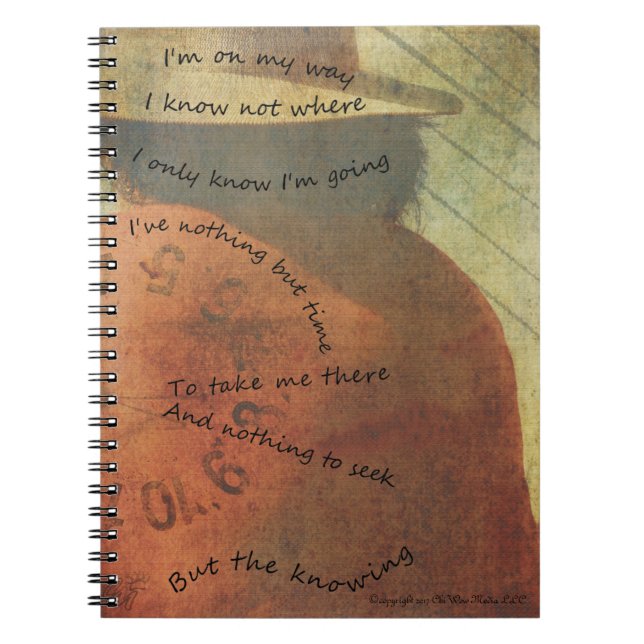 I'm on my way
I know not where
I only know I'm going
I've nothing but time
To take me there
And nothing to seek
But the knowing
5
6
8
9
10
© copyright 2017 ChiWow Media LLC